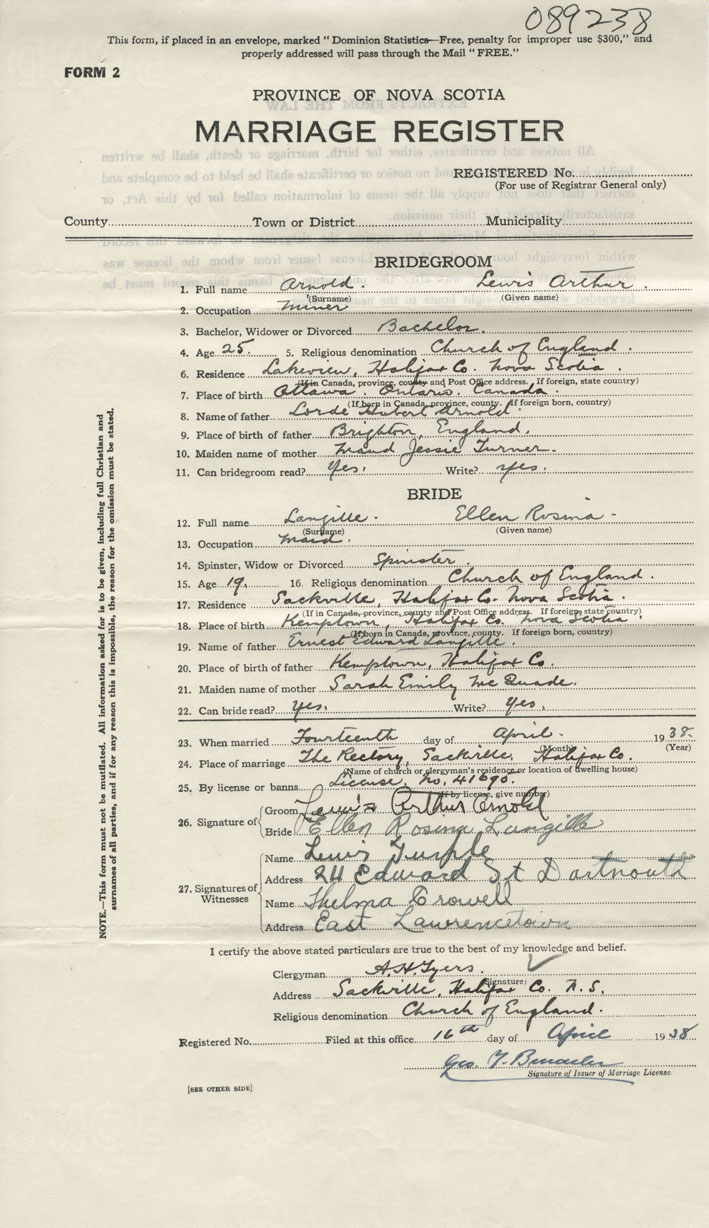 089238
This form, if placed in an envelope, marked "Dominion Statistics—Free, penalty for improper use $300," and
properly addressed will pass through the Mail "FREE."
FORM 2
PROVINCE OF NOVA SCOTIA
MARRIAGE REGISTER
REGISTERED No.
(For use of Registrar General only)
County Town or District Municipality
BRIDEGROOM
1. Full name Arnold. Lewis Arthur.
(Surname) (Given name)
2. Occupation Miner
3. Bachelor, Widower or Divorced Bachelor.
4. Age 25. 5. Religious denomination Church of England.
6. Residence Lakeview, Halifax Co. Nova Scotia.
(If in Canada, province, county and Post Office address. If foreign, state country)
7. Place of birth Ottawa. Ontario. Canada.
(If born in Canada, province, county. If foreign born, country)
8. Name of father Lorde Hubert Arnold.
9. Place of father Brighton, England.
10. Maiden name of mother Maud Jessie Turner.
11. Can bridegroom read? Yes. Write? yes.
BRIDE
12. Full name Langille. Ellen Rosina.
(Surname) (Given name)
13. Occupation Maid.
14. Spinster, Widow or Divorced Spinster
15. Age 19. 16. Religious denomination Church of England.
17. Residence Sackville, Halifax Co. Nova Scotia.
(If in Canada, province, county and Post Office address. If foreign, state country)
18. Place of birth Kemptown, Halifax Co. Nova Scotia.
(If born in Canada, province, county. If foreign born, country)
19. Name of father Ernest Edward Langille.
20. Place of birth of father Kemptown, Halifax Co.
21. Maiden name of mother Sarah Emily McQuade.
22. Can bride read? Yes. Write? Yes.
23. When married Fourteenth day of April. 1938.
(Month) (Year)
24. Place of marriage The Rectory, Sackville, Halifax Co.
(Name of church or clergyman's residence or location of dwelling house)
25. By license or banns License, No.
(If by license, give number)
26. Signature of Groom Lewis Arthur Arnold
Bride Ellen Rosina Langille
27. Signatures of Witnesses
Name Lewis Turple
Address 24 Edward St Dartmouth
Name Thelma Crowell
Address East Lawrencetown
I certify the above stated particulars are true to the best of my knowledge and belief.
Clergyman A.H.Tyers.
(Signature)
Address Sackville, Halifax Co. N.S.
Religious denomination Church of England.
Registered No. Filed at this office 16th day of April 1938
Geo. T.
Signature of Issuer of Marriage License.
[SEE OTHER SIDE]
NOTE.—This form must not be mutilated. All information asked for is to be given, including full Christian and
surnames of all parties, and if for any reason this is impossible, the reason for the omission must be stated.